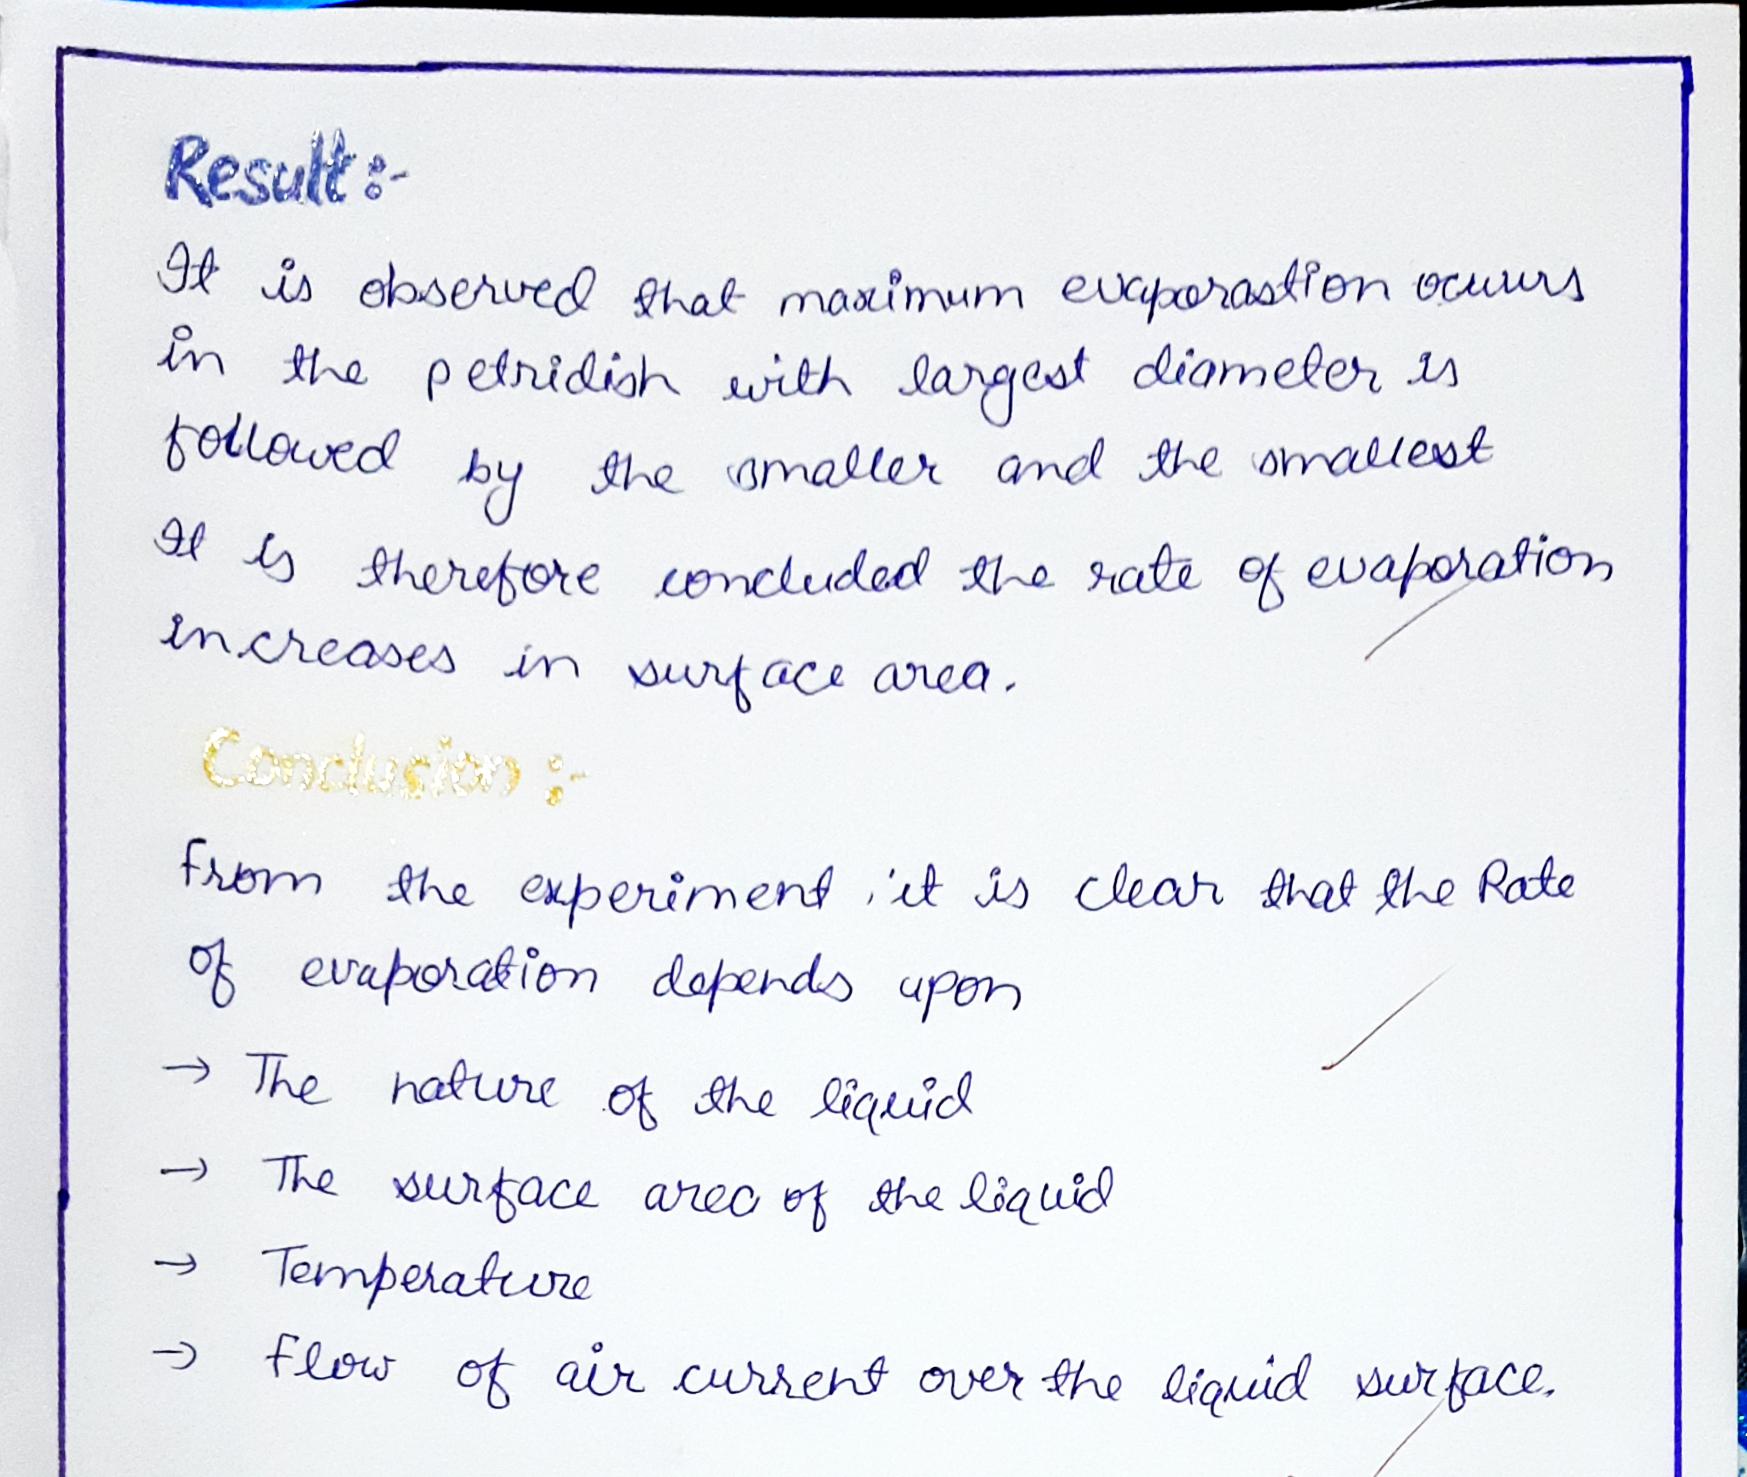 Result:-
It is observed that maximum evaporastion ocuurs
in the petridish with largest diameter is
followed by the smaller and the smallest
It is therefore concluded the rate of evaporation
increases in surface area.
Conclusion :-
from the experiment, it is clear that the Rate
of evaporation depends upon
→ The nature of the liquid
→ The surface area of the liquid
→ Temperature
→ flow of air current over the liquid surface.